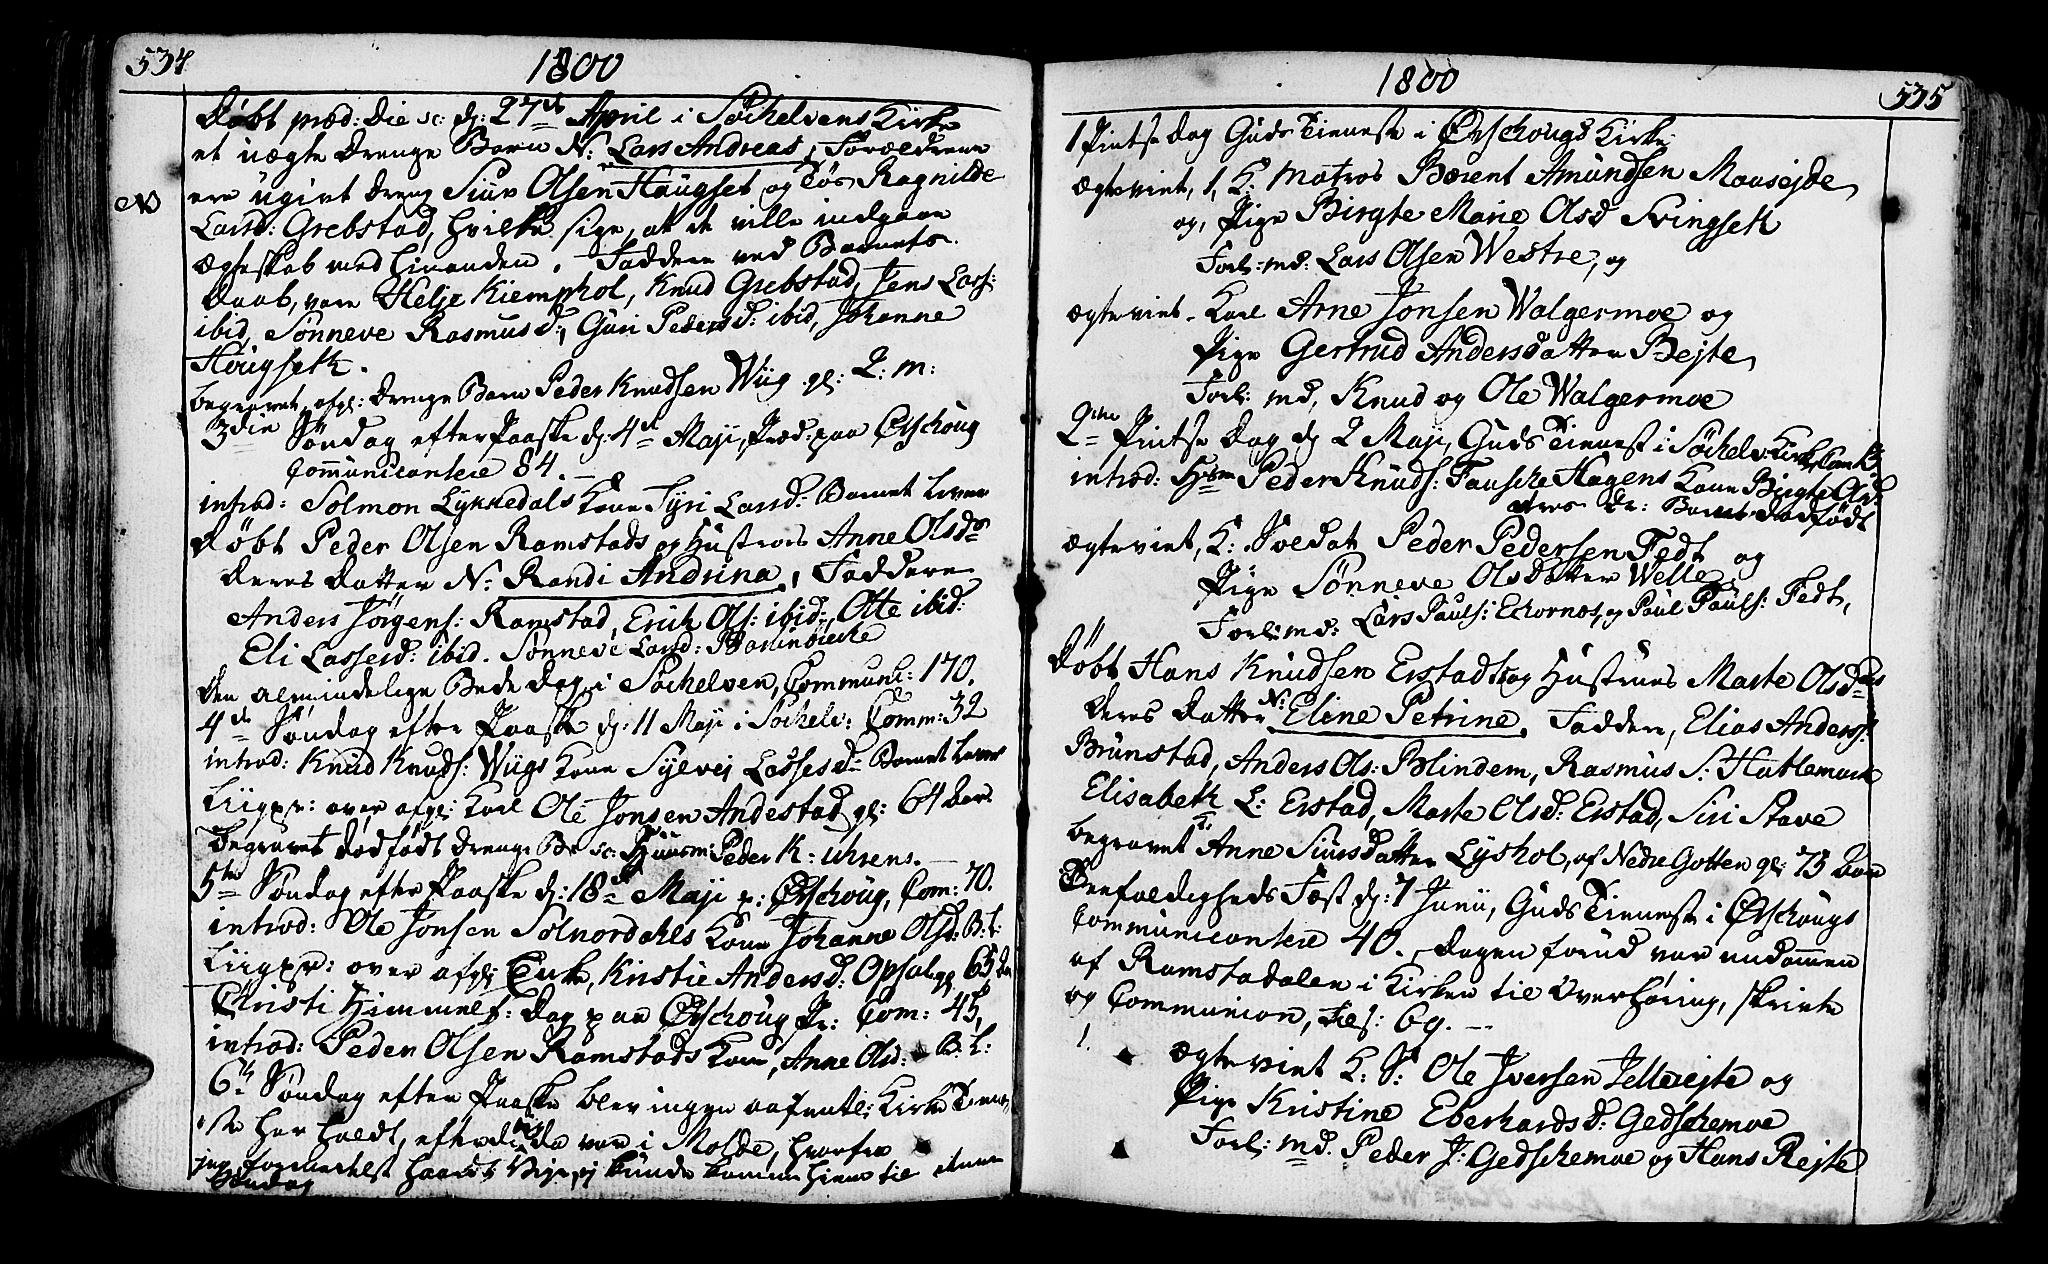 534
1800
Døbt præd: Die sc: d: 27de April i Søchelvens Kirke
et uægte Drenge Barn N: Lars Andreas, Forældrene
ere ugivt Dreng Siur Olsen Haugset og Tøs Ragnilde
NB
Larsd: Grebstad, hvilke sige, at de ville indgaae
Ægteskab med hinanden. Faddere ved Barnets
Daab, vare Helje Kiemphol, Knud Grebstad, Jens Lass:
ibid, Sønneve Rasmusd:, Guri Pedersd: ibid, Johanne
Hougseth.
begravet, afg: Drenge Barn Peder Knudsen Wiig gl: 2: m:
3die Søndag efter Paaske d: 4de Maji, Præd: paa Ørschoug
Communicantere 84. —
introd: Solmon Lyknedals Kone Syri Larsd: Barnet lever
Døbt Peder Olsen Ramstads og Hustrues Anne Olsdrs
Deres Datter N: Randi Andrina, Faddere
Anders Jørgens: Ramstad, Erich Ols: ibid:, Otte ibid:
Eli Lassesd: ibid. Sønneve Larsd:
Den almindelige Bede Dag i Søchelven, Communi: 170.
4de Søndag efter Paaske d: 11 Maji i Søchelv: Comm: 32
introd: Knud Knuds: Wiigs Kone Sylvej Lassesd: Barnet lever
Liigpr: over afg: Karl Ole Jonsen Andestad gl: 64 Aar
Begravet dødfødt Drenge Bn sc: Huusm: Peder K: Uhrens. —
5te Søndag efter Paaske d: 18de Maji p: Ørschoug, Com: 70.
introd: Ole Jonsen Solnordahls Kone Johanne Olsd: B: l:
Liigpr: over afg: Enke, Kirstie Andersd: Opsal gl: 63 Aar
Christi Himmelf: Dag paa Ørschoug Pr: Com: 45,
introd: Peder Olsen Ramstads Kone, Anne Olsd: B: L:
6te Søndag efter Paaske blev ingen offentl: Kirke Tiene-
ste her holdt, efterdi jeg da var i Molde, hvorfra
jeg formedelst haardt Vejr, ej kunde komme hiem til denne
Søndag
1800
535
1 Pintse Dag Guds Tieneste i Ørschougs Kirke
Ægteviet, 1, K: Matros Bærent Amundsen Maasejde,
og, Pige Birgte Marie Olsd Svingseth
Forl: md: Lars Olsen Westre, og
Ægteviet. Karl Arne Jonsen Walgermoe og
Pige Gertrud Andersdatter Bejte,
Forl: md, Knud og Ole Walgermoe
2den Pintse Dag d 2 Maji, Guds Tieneste i Søchelv Kirke,
introd: Hsm Peder Knuds: Fausche Hagens Kone Birgte Olsd
deres Dr: Barnet dødfødt
Ægteviet, K: Soldat Peder Pedersen Fedt og
Pige Sønneve Olsdatter Welle,
Forl: md: Lars Pauls: Echornes, og Paul Pauls: Fedt,
Døbt Hans Knudsen Erstads og Hustrues Marte Olsdrs
Deres Datter N: Eline Petrine, Faddere, Elias Anders:
Brunstad, Anders Ols: Blindem, Rasmus S: Hatlemark
Elisabeth L: Erstad, Marte Olsd: Erstad, Siri Stave
begravet Anne Siursdatter Lyshol, af Nedre Gotten gl: 73 Aar
Treefoldigheds Fest d: 7 Junii, Guds Tieneste i Ørschougs
Communicantere 40. Dagen forud var undommen
af Ramstadalen i Kirken til Overhøring, skrivte
og Communion, 69. —
1. Ægteviet K: S: Ole Iversen Tellerejte og
Pige Kristine Eberhardsd: Gedschemoe
Forl: md. Peder J: Gedschemoe og Hans Rejte